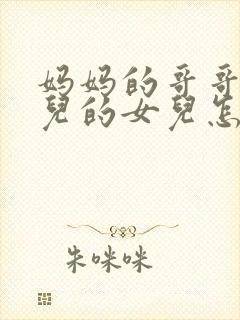 妈妈的哥哥
兒的女兒怎
朱咪咪